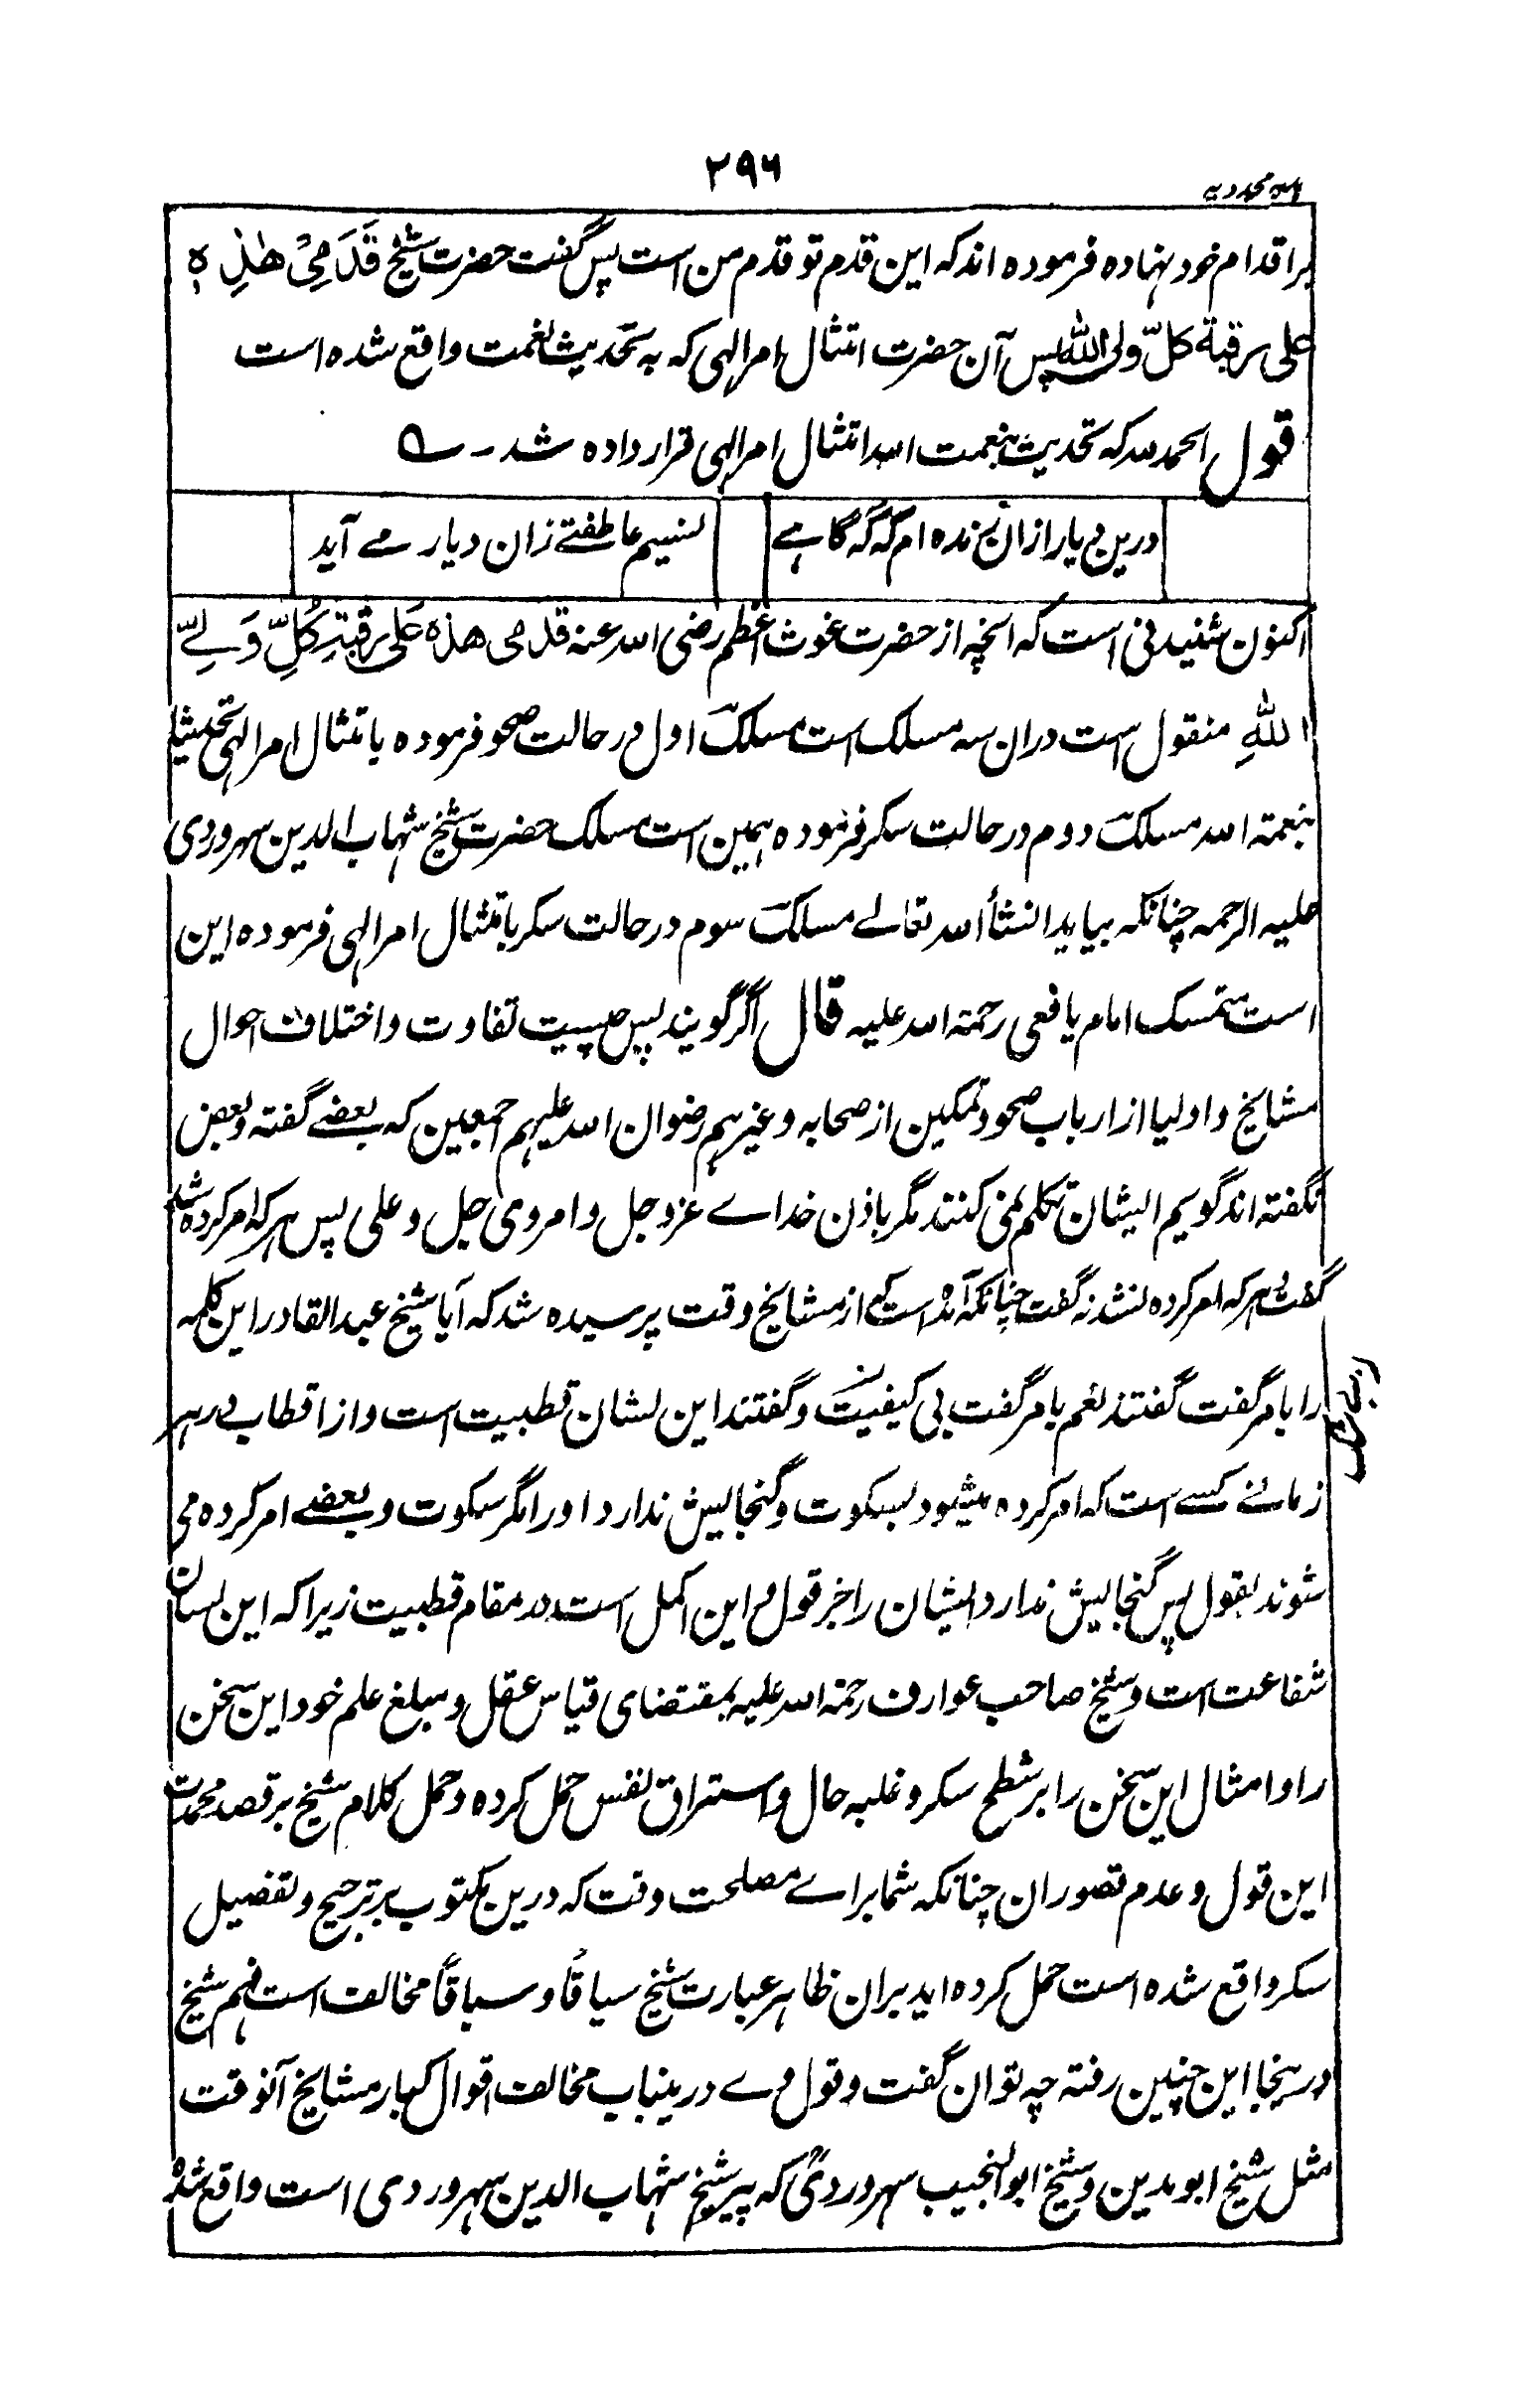 ۲۹۶
بر اقدام خود نهاده فرموده اند که این قدم تو قدم من است پس گفت حضرت شیخ قَدَمِیْ هٰذِهٖ
علی رقبة کلّ ولی الله پس آن حضرت امتثال امر الهی که به تحدیث نعمت واقع شده است
قول الحمد لله که تحدیث بنعمت الله امتثال امر الهی قرار داده شد ـ ـه
درین دیار ازان زنده ام که گه گاهے
نسیم عاطفتے زان دیار مے آید
اکنون شنیدنی است که آنچه از حضرت غوث اعظم رضی الله عنه قدمی هذه عَلی رقبةِ کُلِّ وَلِیِّ
اللهِ منقول است دران سه مسلک است مسلک اول در حالت صحو فرموده بامتثال امر الهی تحدیثا
بنعمة الله مسلک دوم در حالت سکر فرموده همین است مسلک حضرت شیخ شهاب الدین سهروردی
علیه الرحمه چنانکه بیاید انشأ الله تعالے مسلک سوم در حالت سکر بامتثال امر الهی فرموده این
است متمسک امام یافعی رحمة الله علیه قال اگر گویند پس چیست تفاوت و اختلاف احوال
مشایخ و اولیا از ارباب صحو و تمکین از صحابه و غیرهم رضوان الله علیهم اجمعین که بعضے گفته و بعض
نگفته اند گویم ایشان تکلم نمی کنند مگر باذن خداے عز و جل و امر وی جل و علی پس هر که امر کرده شد
گفت و هر که امر کرده نشد نه گفت چنانکه آمده است که از مشایخ وقت پرسیده شد که آیا شیخ عبد القادر این کلمه
را بامر گفت گفتند نعم بامر گفت بی کیفیت و گفتند این لسان قطبیت است و از اقطاب در هر
زمانے کسے است که امر کرده میشود بسکوت و گنجایش ندارد او را مگر سکوت و بعضے امر کرده می
شوند بقول پس گنجایش ندارد ایشان را جز قول و این اکمل است در مقام قطبیت زیرا که این لسان
شفاعت است و شیخ صاحب عوارف رحمة الله علیه بمقتضای قیاس عقل و مبلغ علم خود این سخن
را و امثال این سخن را بر شطح سکر و غلبه حال و استراق نفس حمل کرده و حمل کلام شیخ بر قصد محمدت
این قول و عدم قصور ان چنانکه شما براے مصلحت وقت که درین مکتوب بر ترجیح و تفضیل
سکر واقع شده است حمل کرده اید بران ظاهر عبارت شیخ سیاقًا و سباقًا مخالف است فهم شیخ
درینجا این چنین رفته چه توان گفت و قول وے درینباب مخالف اقوال کبار مشایخ آنوقت
مثل شیخ ابومدین و شیخ ابوالنجیب سهروردی که پیر شیخ شهاب الدین سهروردی است واقع شده